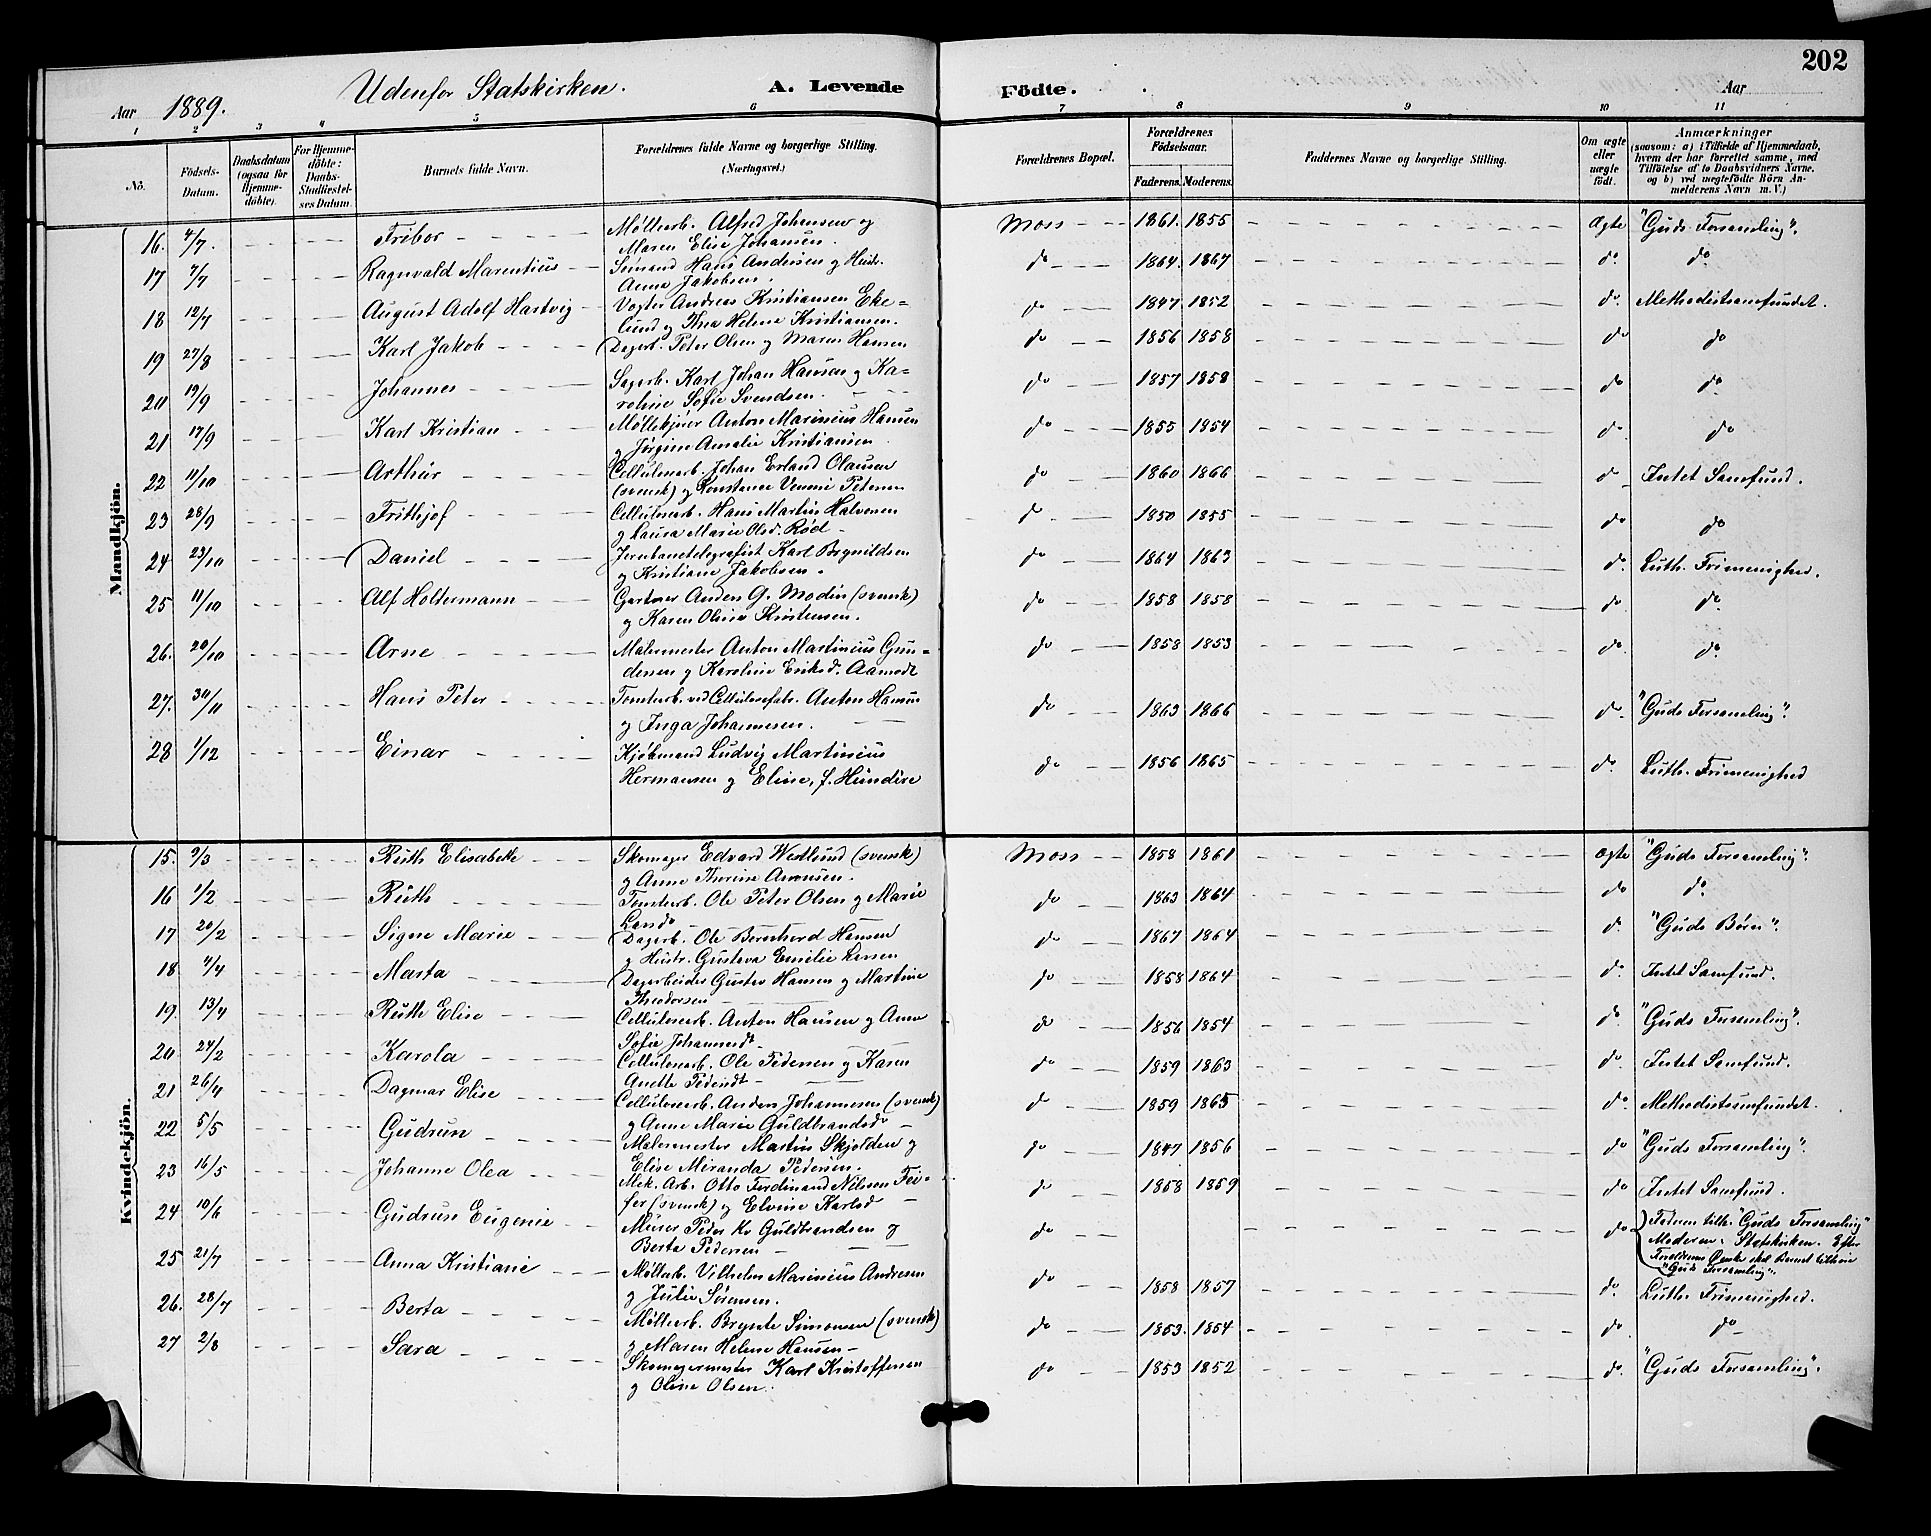 202
Udenfor Statskirken. A. Levende Födte.
Aar 1889. Aar
1 2 3 4 5 6 7 8 9 10 11
No. Födsels-Datum. Daabsdatum (ogsaa för Hjemme-döbte). For Hjemme-döbte: Daabs-Stadfæstel-ses Datum. Barnets fulde Navn. Forældrenes fulde Navne og borgerlige Stilling. (Næringsvei.) Forældrenes Bopæl. Forældrenes Födselsaar. Faderens. Moderens. Faddernes Navne og borgerlige Stilling. Om ægte eller uægte født. Anmærkninger (saasom: a) i Tilfælde af Hjemmedaab, hvem der har forrettet samme, med Tilföielse af to Daabsvidners Navne, og b) ved uægtefödte Börn An-melderens Navn m. V.)
Mandkjön.
16. 4/7. Fribor Møllearb. Alfred Johansen og Moss 1861. 1855 Ægte "Guds Forsamling".
Maren Elise Johansen.
17 7/7 Ragnvald Marentius Sømand Hans Andersen og Hustr. do 1864. 1867 do. do
Anna Jakobsen.
18 12/7 August Adolf Hartvig Vogter Andreas Kristiansen Eke- do 1847. 1852 do. Methodistsamfundet.
lund og Thea Helene Kristiansen.
19 27/8 Karl Jakob Dagarb. Peter Olsen og Maren Hansen do 1856 1858 do do
20 19/9 Johannes Sagarb. Karl Johan Hansen og Ka- do 1857 1858 do do
roline Sofie Svendsen.
21 17/9 Karl Kristian Møllekjører Anton Marinius Hansen do 1855 1854 do. do
og Jørgine Amalie Kristiansen
22 11/10 Arthur Cellulosearb. Johan Erland Olausen do 1860 1866 do. Intet Samfund.
(svensk) og Konstance Petersen
23 28/9 Frithjof Cellulosearb. Hans Martin Halvorsen do 1850 1855 do do
og Laura Marie Olsd. Rød
24 23/10 Daniel Jernbanetelegrafist Karl Brynildsen do 1864 1863 do. Luth. Frimenighed.
og Kristiane Jakobsen.
25 11/10 Alf Holtermann Gartner Anders G. Modin (svensk) do 1858 1858 do do.
og Karen Oline Kristensen.
26. 20/10 Arne Malermester Anton Martinius Gun- do 1858 1853 do. do.
dersen og Karoline Eriksd. Aamodt
27. 30/11 Hans Peter Tomtearb. ved Cellulosefabr. Anton Hansen do 1863 1866 do. "Guds Forsamling".
og Inga Johannesen.
28 1/12 Einar Kjøbmand Ludvig Martinius do 1856 1865 do. Luth. Frimenighed
Hermansen og Eline, f. Hundere
Kvindekjön.
15. 9/3 Ruth Elisabeth Skomager Edvard Westlund (svensk) Moss 1858 1861 Ægte "Guds Forsamling".
og Anne Thorine Aronsen.
16 1/2 Ruth Tomtearb. Ole Peter Olsen og Marie do 1863 1864 do do.
17 20/2 Signe Marie Dagarb. Ole Bernhard Hansen do 1867 1864 do. "Guds Børn".
og Hustr. Gustava Emilie Larsen
18. 4/4 Marta Dagarbeider Gustav Hansen og Martine do 1858 1864 do. Intet Samfund.
Theodorsen
19. 13/4 Ruth Elise Cellulosearb. Anton Hansen og Anne do 1856 1854 do. "Guds Forsamling".
Sofie Johannesdt
20 24/2 Karola Cellulosearb. Ole Pedersen og Karen do 1859 1863 do. Intet Samfund.
Anette Pedersdt
21 26/4 Dagmar Elise Cellulosearb. Anders Johannesen (svensk) do 1859 1865 do. Methodistsamfundet.
og Anne Marie Guldbrandsd
22 5/5 Gudrun Malermester Martin Skjolden og do 1847 1856 do "Guds Forsamling".
Elise Miranda Pedersen.
23 16/5 Johanne Olea Mek. Arb. Otto Ferdinand Nilsson Fei- do 1858 1859 do Intet Samfund.
fer (svensk) og Elvine Karlsd
24 10/6 Gudrun Eugenie Murer Peder Kr Guldbrandsen og do do Faderen tilh. "Guds Forsamling"
Berta Pedersen Moderen: Statskirken. Efter
Forældrenes Ønske skal Barnet tilhøre
"Guds Forsamling".
25 21/7 Anna Kristiane Møllearb. Vilhelm Marinius Andresen do 1858 1857 do. Luth. Frimenighed.
og Julie Sørensen.
26. 28/7 Berta Møllearb. Brynte Simonsen (svensk) do 1853. 1854 do do
og Maren Helene Hansen
27 2/8 Sara Skomagermester Karl Kristoffersen do 1853 1852 do. "Guds Forsamling".
og Oline Olsen.